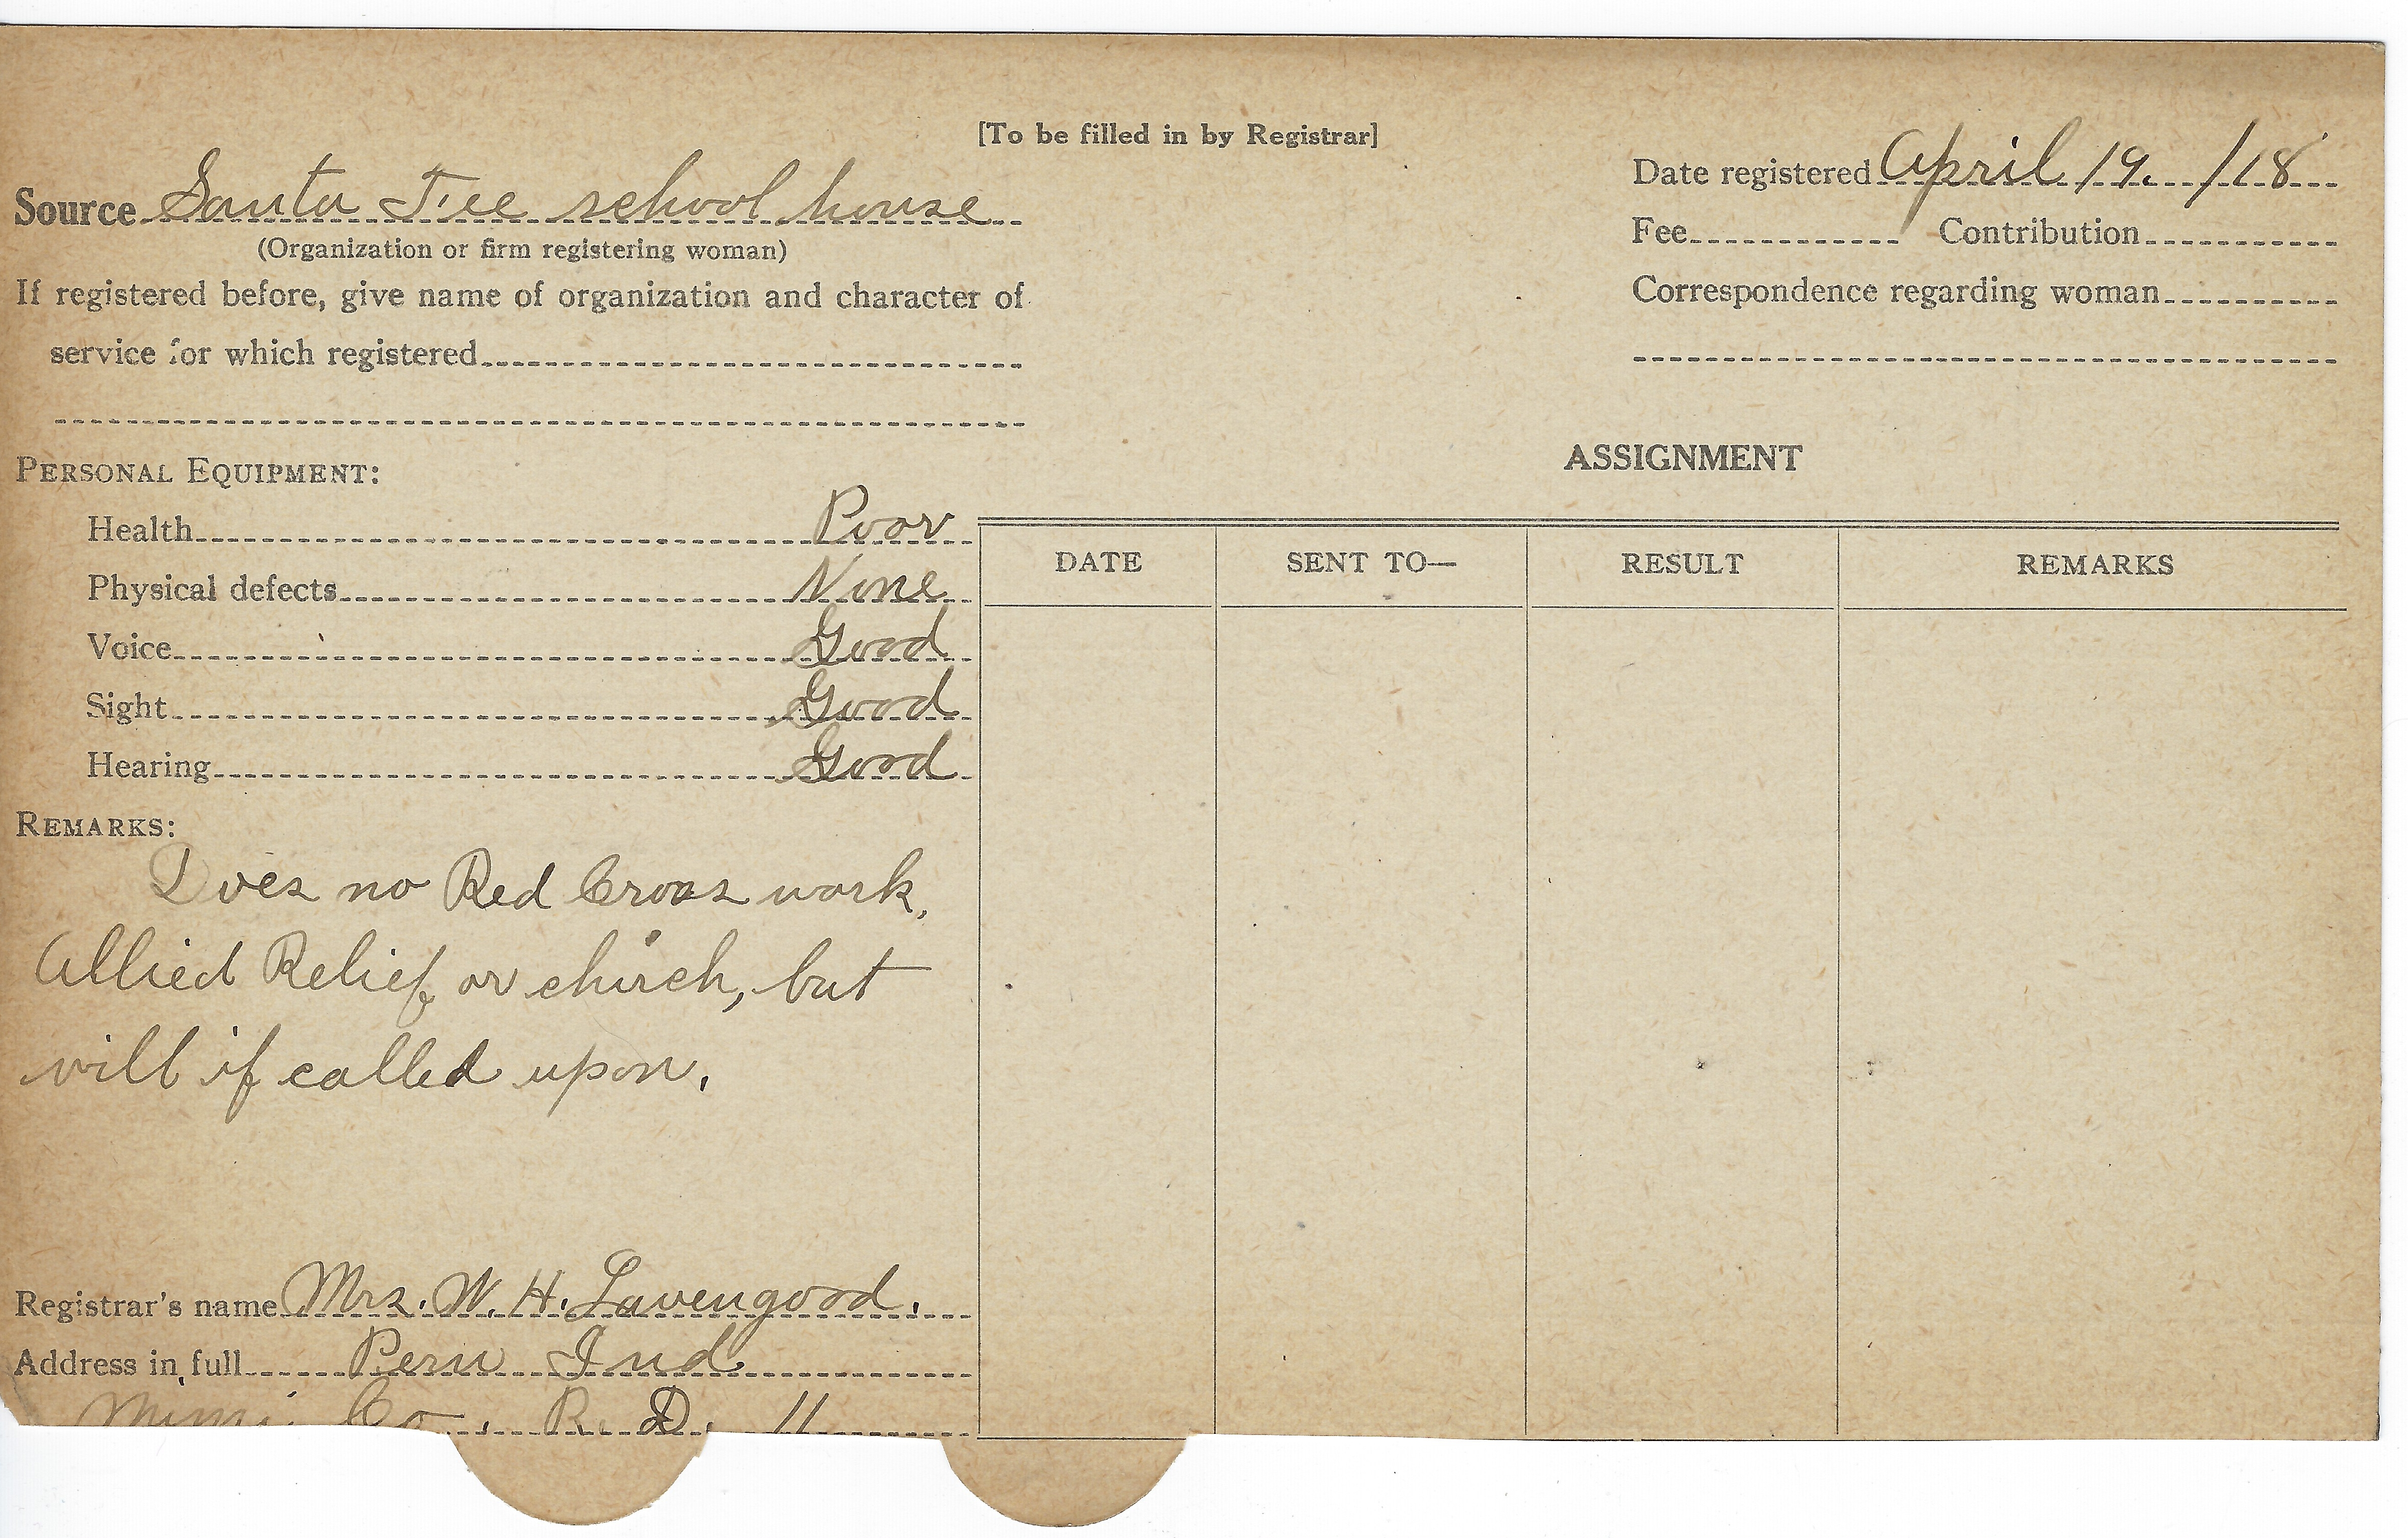 [To be filled in by Registrar]
Source Santa Fee school house
(Organization or firm registering woman)
If registered before, give name of organization and character of
service for which registered
Date registered April 19. /18
Fee Contribution
Correspondence regarding woman
PERSONAL EQUIPMENT:
Health Poor
Physical defects None
Voice Good
Sight Good
Hearing Good
REMARKS:
Does no Red Cross work,
Allied Relief or church, but
will if called upon.
Registrar's name Mrs. W. H. Lavengood.
Address in full Peru Ind
Co. R. D. 11
ASSIGNMENT
DATE SENT TO— RESULT REMARKS